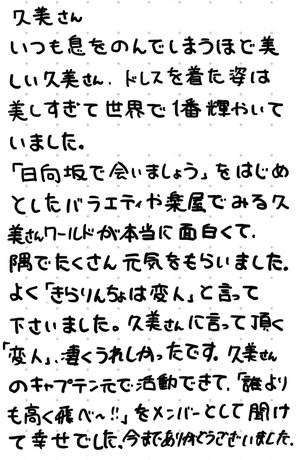 久美さん
いつも息をのんでしまうほど美
しい久美さん、ドレスを着た姿は
美しすぎて世界で1番輝やいて
いました。
「日向坂で会いましょう」をはじめ
としたバラエティや楽屋でみる久
美さんワールドが本当に面白くて、
隅でたくさん元気をもらいました。
よく「きらりんちょは変人」と言って
下さいました。久美さんに言って頂く
「変人」、凄くうれしかったです。久美さん
のキャプテン元で活動できて、「誰より
も高く飛べ〜!!」をメンバーとして聞け
て幸せでした。今までありがとうございました。